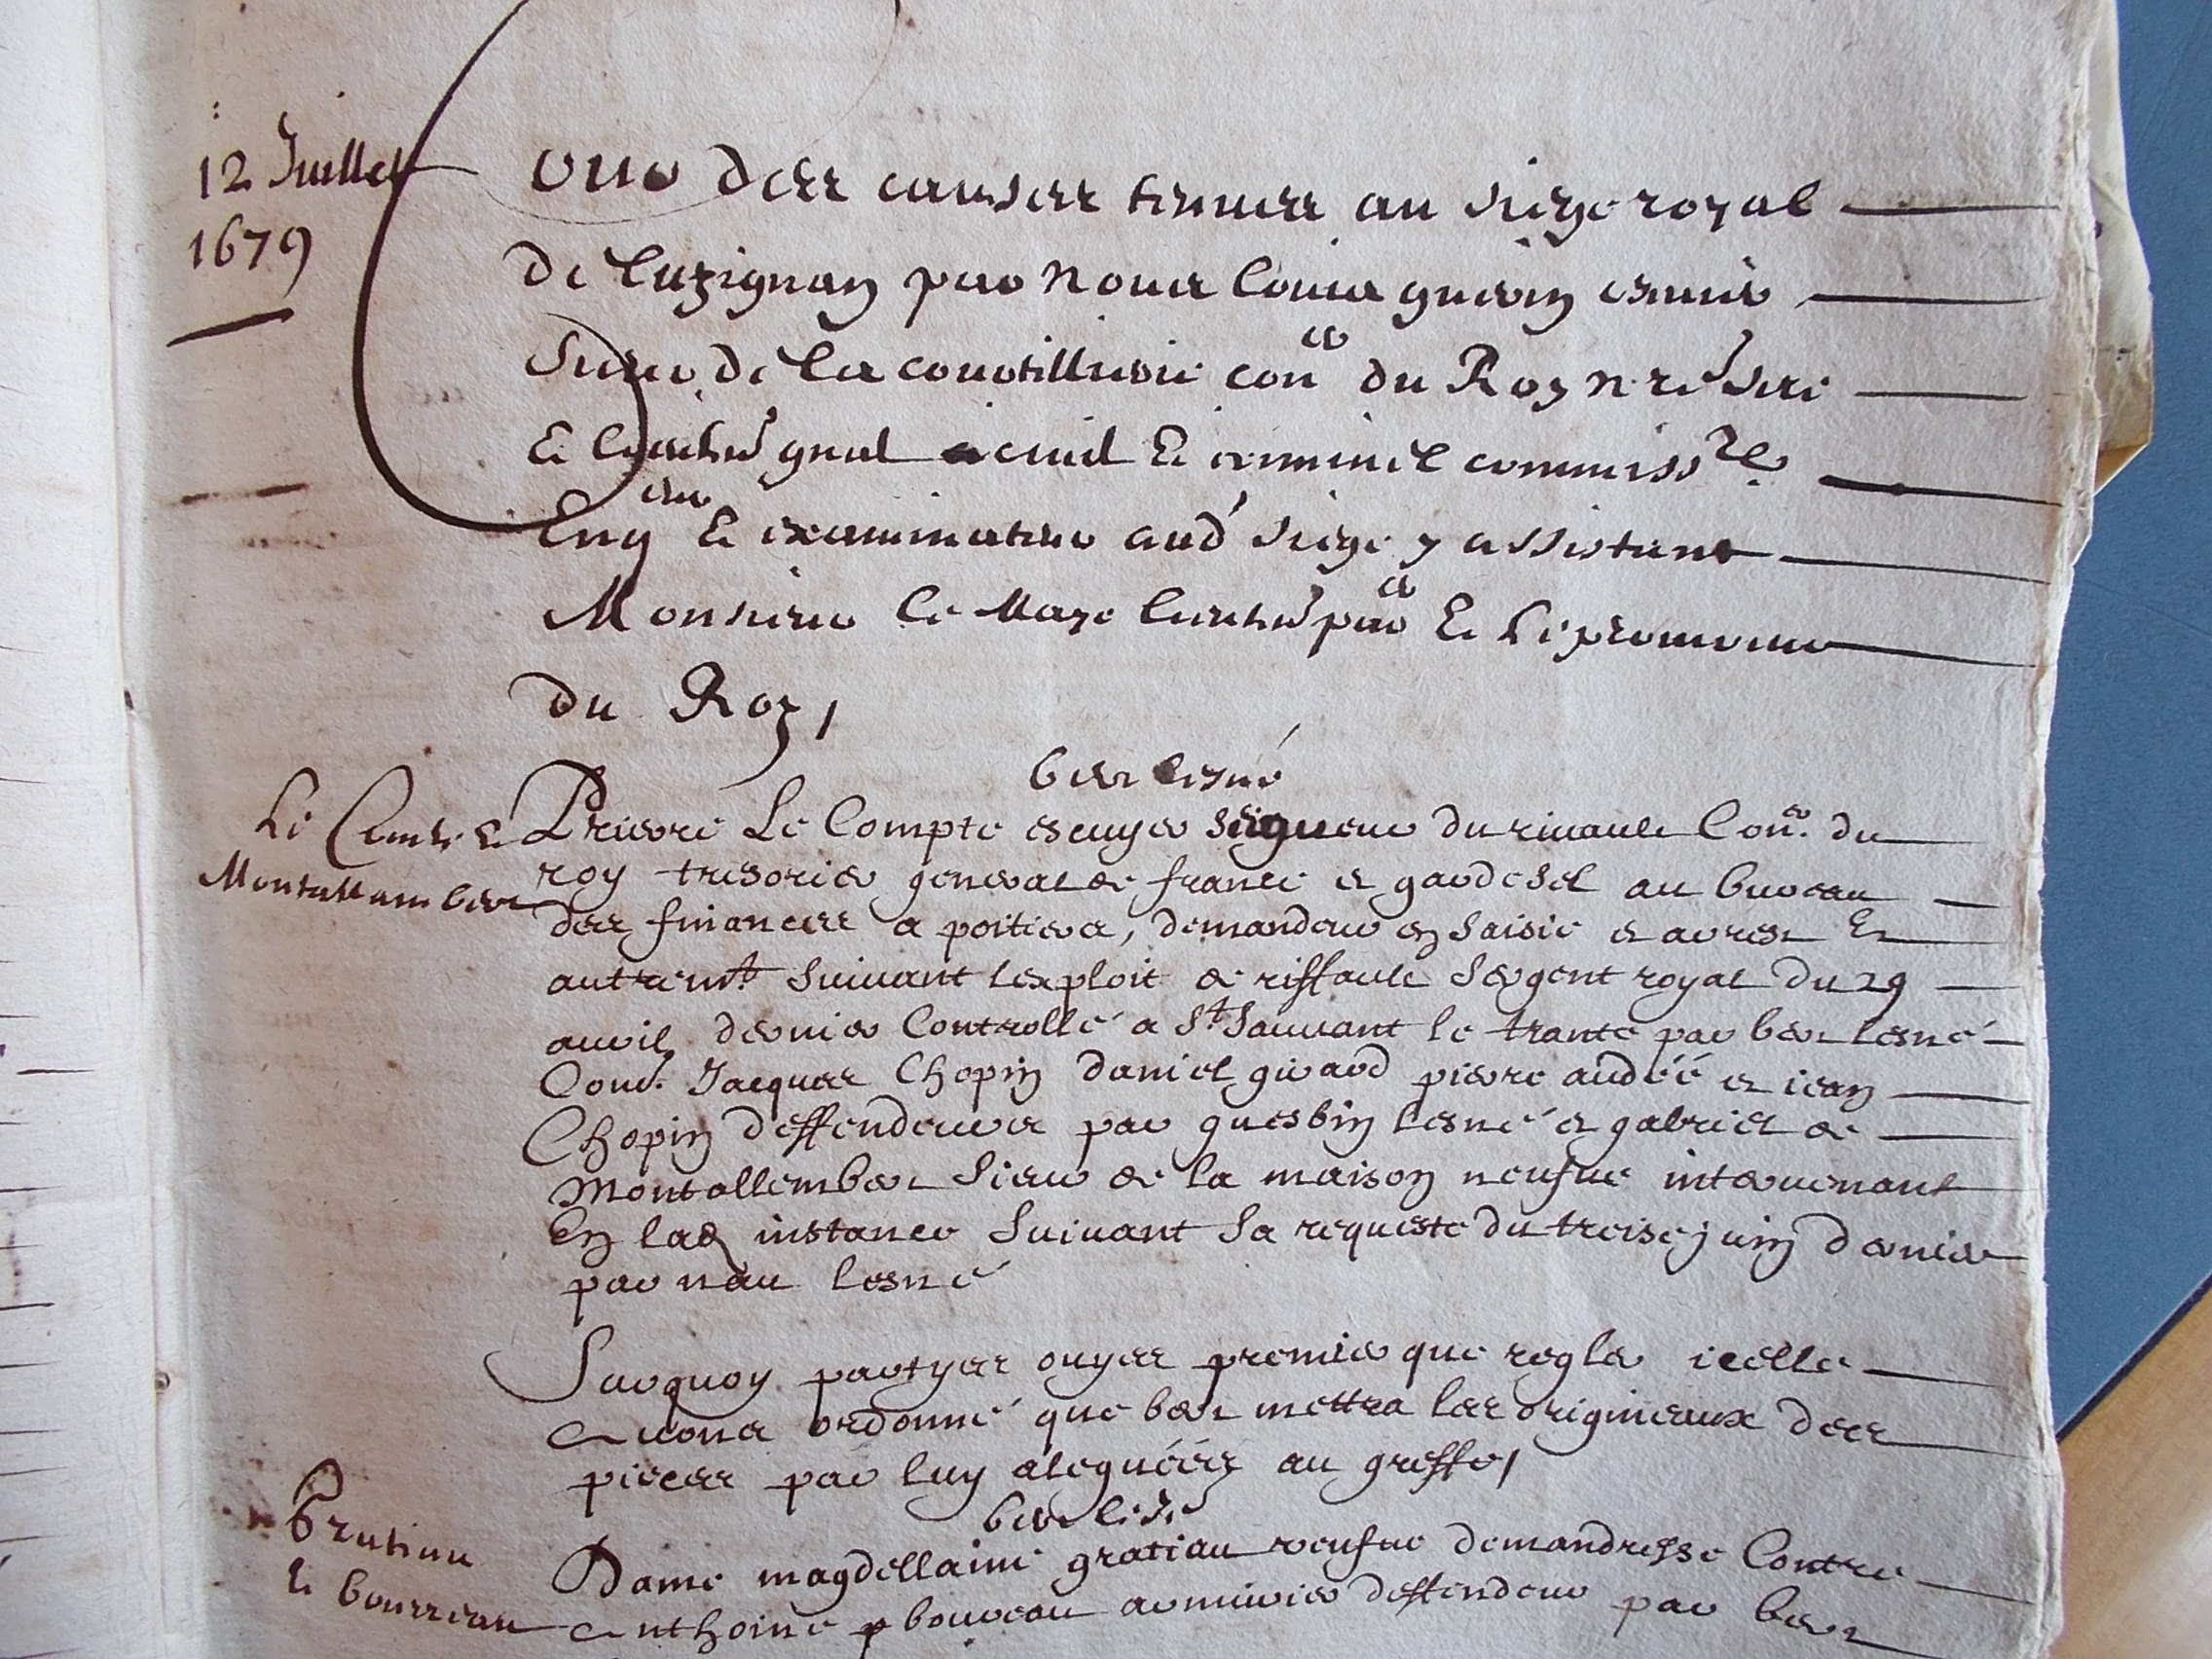 12 Juillet
1679
Cour des causes tenues au siege royal
de Luzignan par nous Louis guerin escuier
Sieur de la courtilleraie con.er du Roy n.re sire
Et lieuten.t gnal civil Et criminel commiss.re
Enq.teur Et examinateur aud. siege y assistant
Monsieur le Maye lieuten.t p.er Et le procureur
du Roy,
ber lesné
Le Compte Et
Montallamber
Pierre Le Compte escuyer seigneur du rivault Con.er du
roy tresorier general de france et garde sel au bureau
des finances a poitiers, demandeur en saisie et arrest Et
autremt suivant lexploit de riffault sergent royal du 29
avril dernier Controllé a St Sauvant le trante par ber lesné
Contre Jacques Chopin daniel girard pierre audéé et iean
Chopin deffendeurs par guesbin lesné et gabriel de
Montallember sieur de la maison neufve intervenant
En lad instance suivant sa requeste du treise juin dernier
par nau lesné
Surquoy partyes ouyes premier que regler icelles
avons ordonné que ber mettra les originaux des
pieces par luy aleguéés au greffe,
ber lesné
Gratiau
Et bourreau
Dame magdellaine gratiau veufve demandresse Contre
anthoine boureau armurier deffendeur par ber